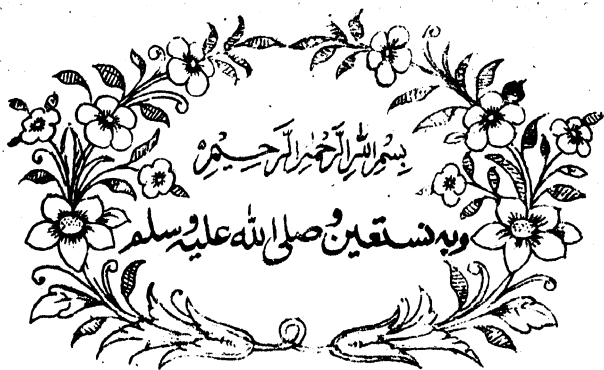 بِسْمِ اللهِ الرَّحْمٰنِ الرَّحِيمِ
وبه نستعين وصلى الله عليه وسلم